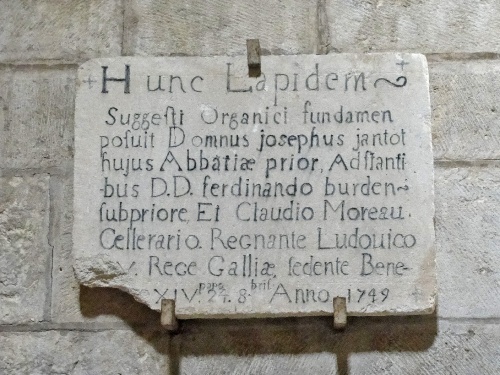 Hunc Lapidem~
Suggesti Organici fundamen
posuit Domnus josephus jantot
hujus Abbatiæ prior, Adstanti
bus D.D. ferdinando burden~
subpriore, Et Claudio Moreau.
Cellerario. Regnante Ludouico
V. Rege Galliæ, sedente Bene-
XIV. 8.bris Anno 1749